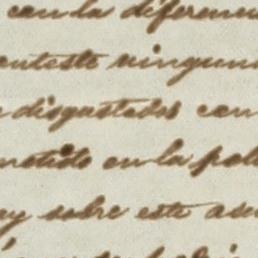 con la diferen
conteste ninguna
disgustados con
metido en la pol
y sobre este asu